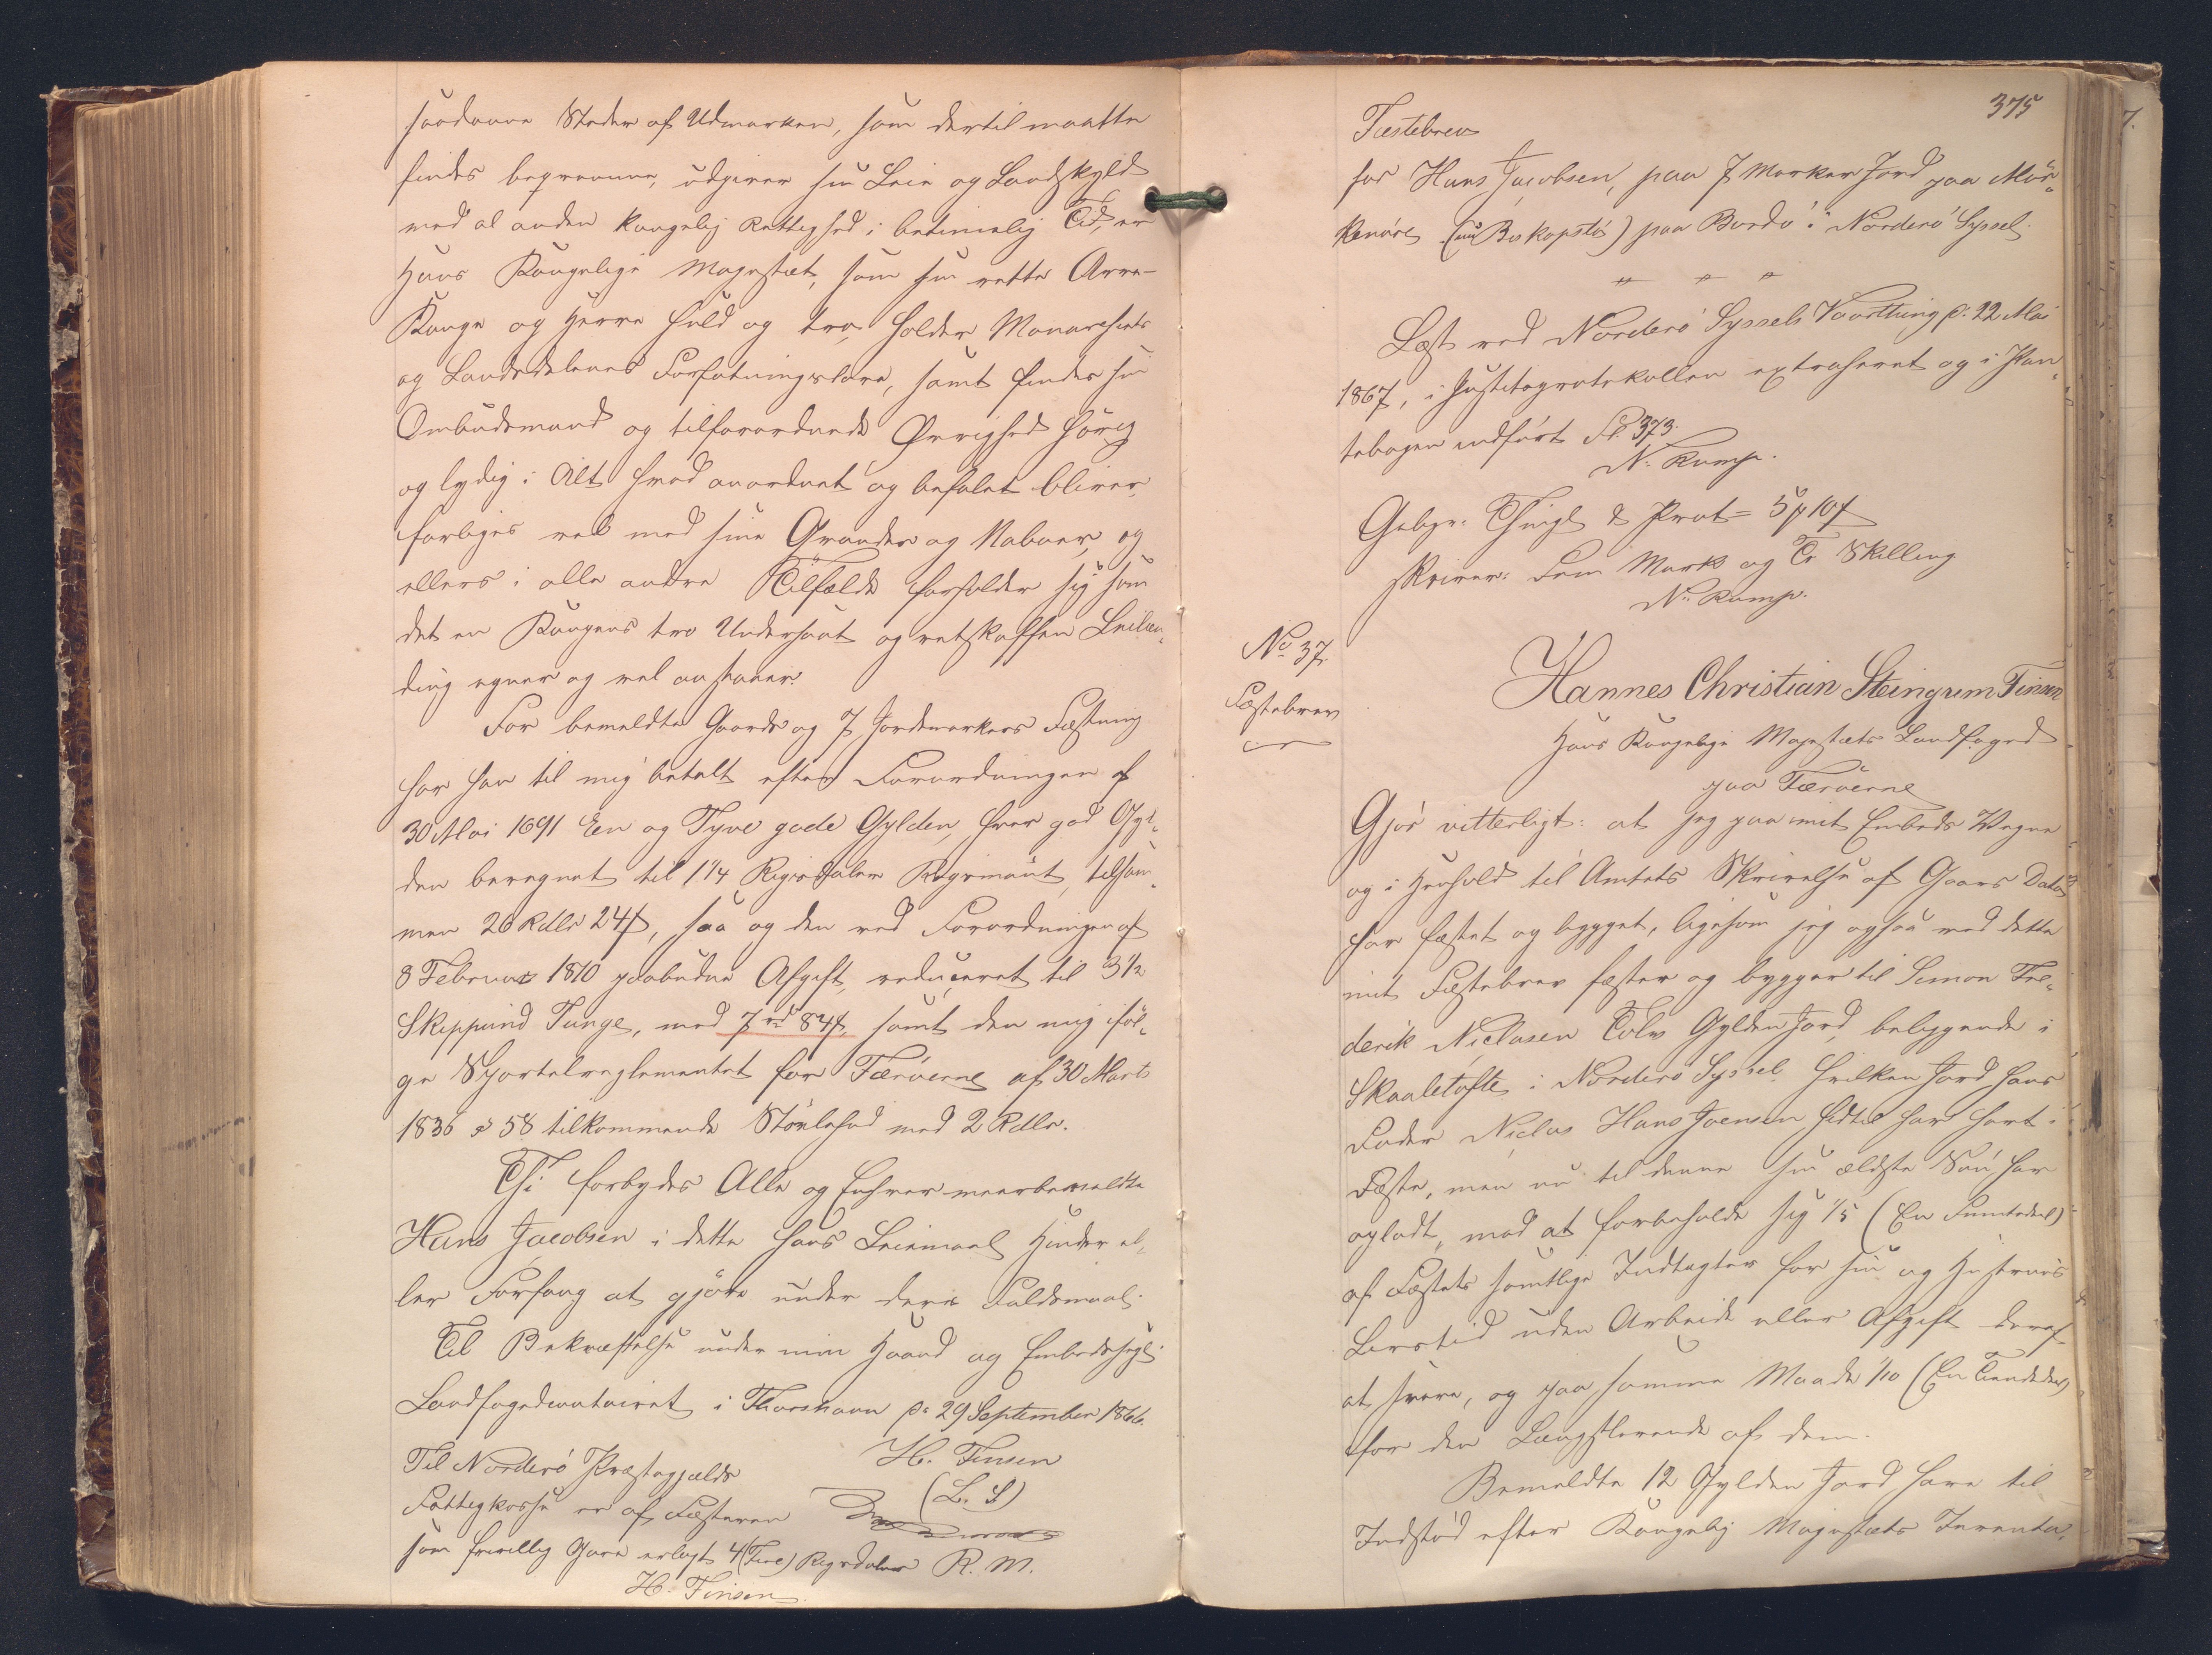 saadanne Steder af Udmarken, som dertil maatte
findes beqvemme, udgiver sin Leie og Landskyld
med al anden kongelig Rettighed i betimelig Tid, er
Hans Kongelige Majestæt, som sin rette Arve-
Konge og Herre huld og tro, holder Monarchiets
og Landsdelenes Forfatningslove, samt findes sin
Ombudsmand og tilforordnede Øvrighed hörig
og lydig i Alt hvad anordnet og befalet bliver,
forliges vel med sine Grander og Naboer, og
ellers i alle andre Tilfælde forholder sig som
det en Kongens tro Undersaat og retskaffen Leilæn-
ding egner og vel anstaaer.
For bemeldte Gaards og 7 Jordemarkers Fæstning
har han til mig betalt efter Forordningen af
30 Mai 1691 Een og Tyve gode Gylden, hver god Gyl-
den beregnet til 1 1/4 Rigsdaler Rigsmönt, tilsam-
men 26 Rdlr 24 ß, saa og den ved Forordningen af
8 Februar 1810 paabudne Afgift, reduceret til 3 1/2
Skippund Tunge, med 7 rd 84 ß, samt den mig iföl-
ge Sportelreglementet for Færöerne af 30 Marts
1836 § 58 tilkommende Störlehud med 2 Rdlr.
Thi forbydes Alle og Enhver meerbemeldte
Hans Jacobsen i dette hans Leiemaal Hinder el-
ler Forfang at gjöre under deres Faldsmaal.
Til Bekræftelse under min Haand og Embedssegl.
Landfogedcontoiret i Thorshavn p: 29 September 1866.
H. Finsen
(L. S)
Til Norderö Præstegjælds
Fattigkasse er af Fæsteren
som frivillig Gave erlagt 4 (Fire) Rigsdaler R. M.
H. Finsen
375
Fæstebrev
for Hans Jacobsen, paa 7 Marker Jord paa Mör-
kenöre (nu Biskopstö) paa Bordö i Norderö Syssel.
" " "
Læst ved Norderö Syssels Vaarthing d: 22 Mai
1867, i Justitsprotokollen extraheret og i Pan-
tebogen indfört Fol. 373.
N. Kamp.
Gebyr: Thingl & Prot = 5 ₰ 10 ß
skriver: Fem Mark og Ti Skilling
N. Kamp.
No 37.
Fæstebrev
Hannes Christian Steingrim Finsen
Hans Kongelige Majestæts Landfoged
paa Færöerne
Gjör vitterligt: at jeg paa mit Embeds Vegne
og i Henhold til Amtets Skrivelse af Gaars Dato
har fæstet og bygget, ligesom jeg ogsaa med dette
mit Fæstebrev fæster og bygger til Simon Fre-
derik Niclasen Tolv Gylden Jord, beliggende i
Skaaletofte i Norderö Syssel, hvilken Jord hans
Fader Niclas Hans Joensen hidtil har havt i
Fæste, men nu til denne sin ældste Sön har
opladt, mod at forbeholde sig 1/5 (En Femtedeel)
af Fæstets samtlige Indtægter for sin og Hustrues
Livstid uden Arbeide eller Afgift deraf
at svare, og paa samme Maade 1/10 (En Tiendedeel)
for den Længstlevende af dem.
Bemeldte 12 Gylden Jord have til
Indstöd efter Kongelig Majestæts Inventa-